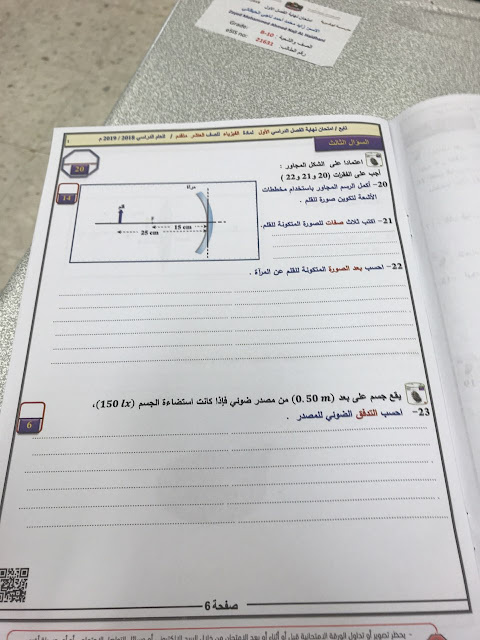 امتحان نهاية الفصل الأول
Zayed Mohammed Ahmed
Grade:
الصف والشعبة: 10-B
eSIS no:
رقم الطالب: 21631
تابع / امتحان نهاية الفصل الدراسي الأول لمادة الفيزياء للصف العاشر متقدم / العام الدراسي 2018 / 2019 م
السؤال الثالث
20
اعتمادا على الشكل المجاور :
أجب على الفقرات (20 و 21 و 22 )
14
20- أكمل الرسم المجاور باستخدام مخططات الأشعة لتكوين صورة للقلم .
مرآة
15 cm
25 cm
21- اكتب ثلاث صفات للصورة المتكونة للقلم.
22- احسب بعد الصورة المتكونة للقلم عن المرآة .
يقع جسم على بعد (0.50 m) من مصدر ضوئي فإذا كانت استضاءة الجسم (150 lx)،
6
23- احسب التدفق الضوئي للمصدر .
صفحة 6